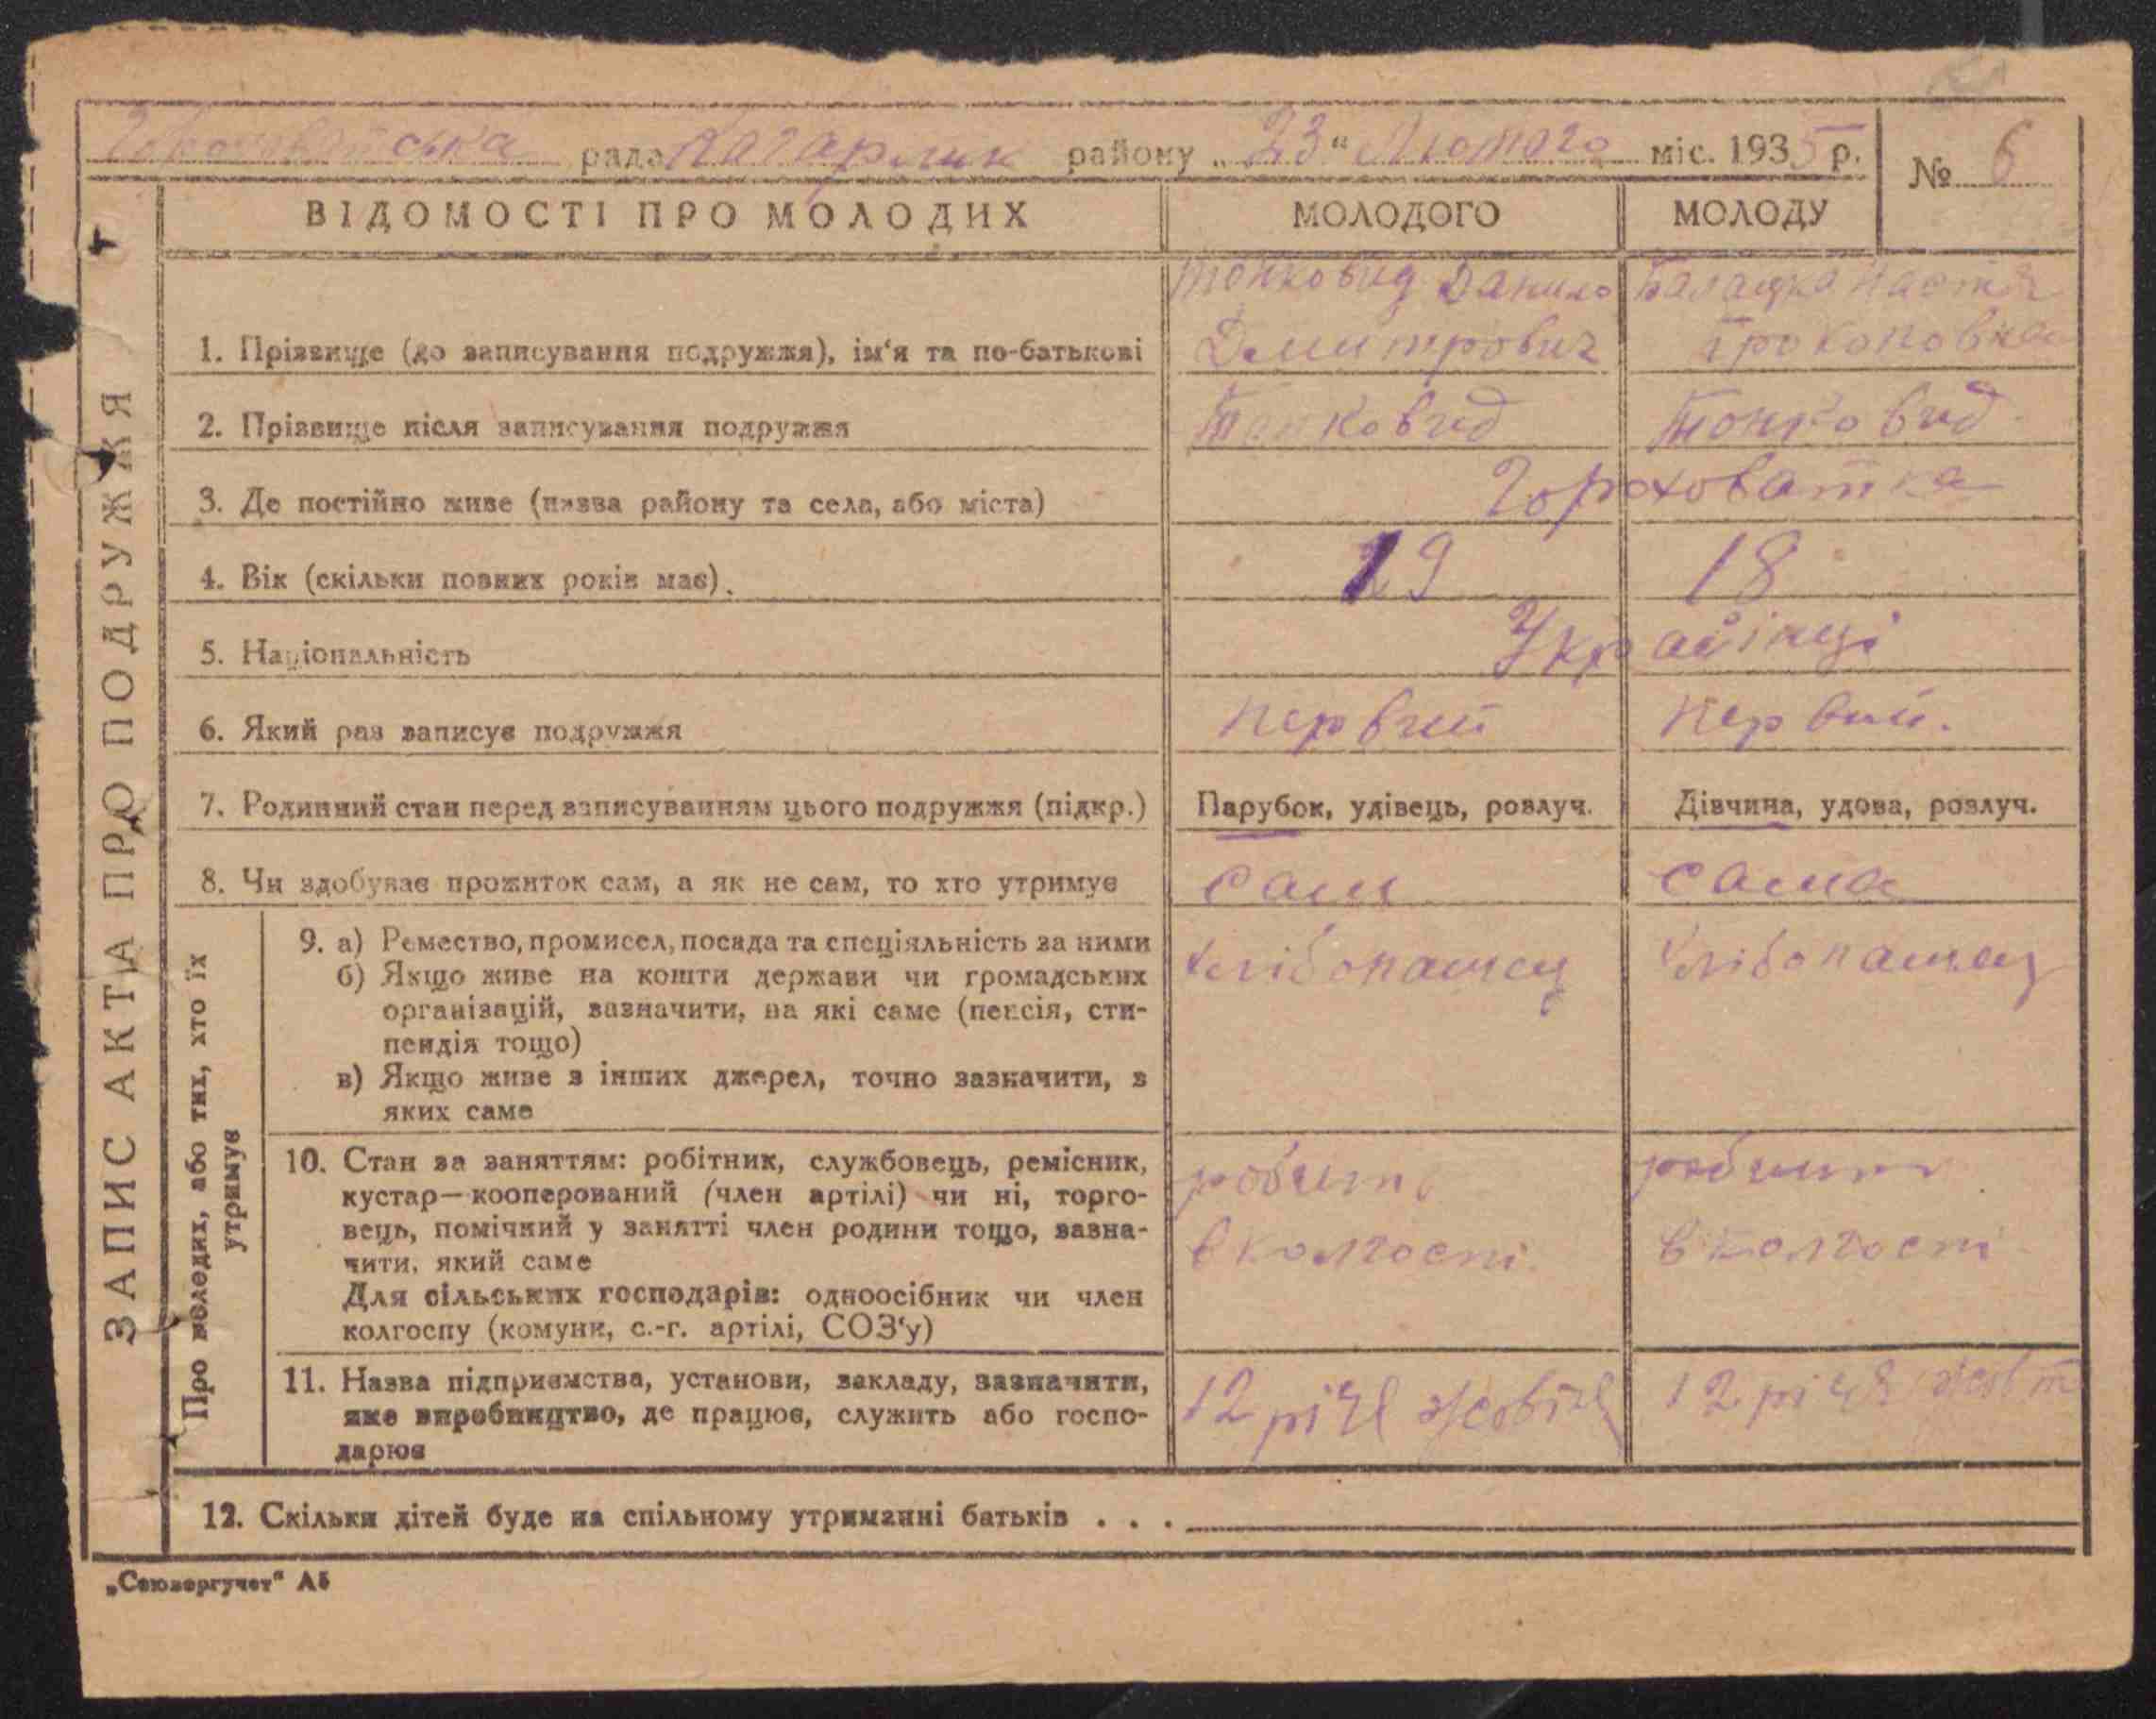 Гороховатська рада Кагарлик району „23" Лютого міс. 1935 р. № 6
ВІДОМОСТІ ПРО МОЛОДИХ МОЛОДОГО МОЛОДУ
Тонковид Данило Настя
1. Прізвище (до записування подружжя), ім'я та по-батькові Демитрович Проконовна
2. Прізвище після записування подружжя Тонковид Тонковид
3. Де постійно живе (назва району та села, або міста) Гороховатка
4. Вік (скільки повних років має). 19 18
5. Національність Українці
6. Який раз записує подружжя первий первий.
7. Родинний стан перед записуванням цього подружжя (підкр.) Парубок, удівець, розлуч. Дівчина, удова, розлуч.
8. Чи здобуває прожиток сам, а як не сам, то хто утримує сам сама
ЗАПИС АКТА ПРО ПОДРУЖЖЯ
Про молодих, або тих, хто їх
утримує
9. а) Ремество, промисел, посада та спеціяльність за ними хлібопашец хлібопашец
б) Якщо живе на кошти держави чи громадських
організацій, зазначити, на які саме (пенсія, сти-
пендія тощо)
в) Якщо живе з інших джерел, точно зазначити, з
яких саме
10. Стан за заняттям: робітник, службовець, ремісник, робить робить
кустар—кооперований (член артілі) чи ні, торго-
вець, помічний у занятті член родини тощо, зазна- в колгоспі. в колгоспі
чити, який саме
Для сільських господарів: одноосібник чи член
колгоспу (комуни, с.-г. артілі, СОЗ'у)
11. Назва підприємства, установи, закладу, зазначити, 12 річя 12 річя
яке виробництво, де працює, служить або госпо-
дарює
12. Скільки дітей буде на спільному утриманні батьків . . .
„Союзоргучет" А5